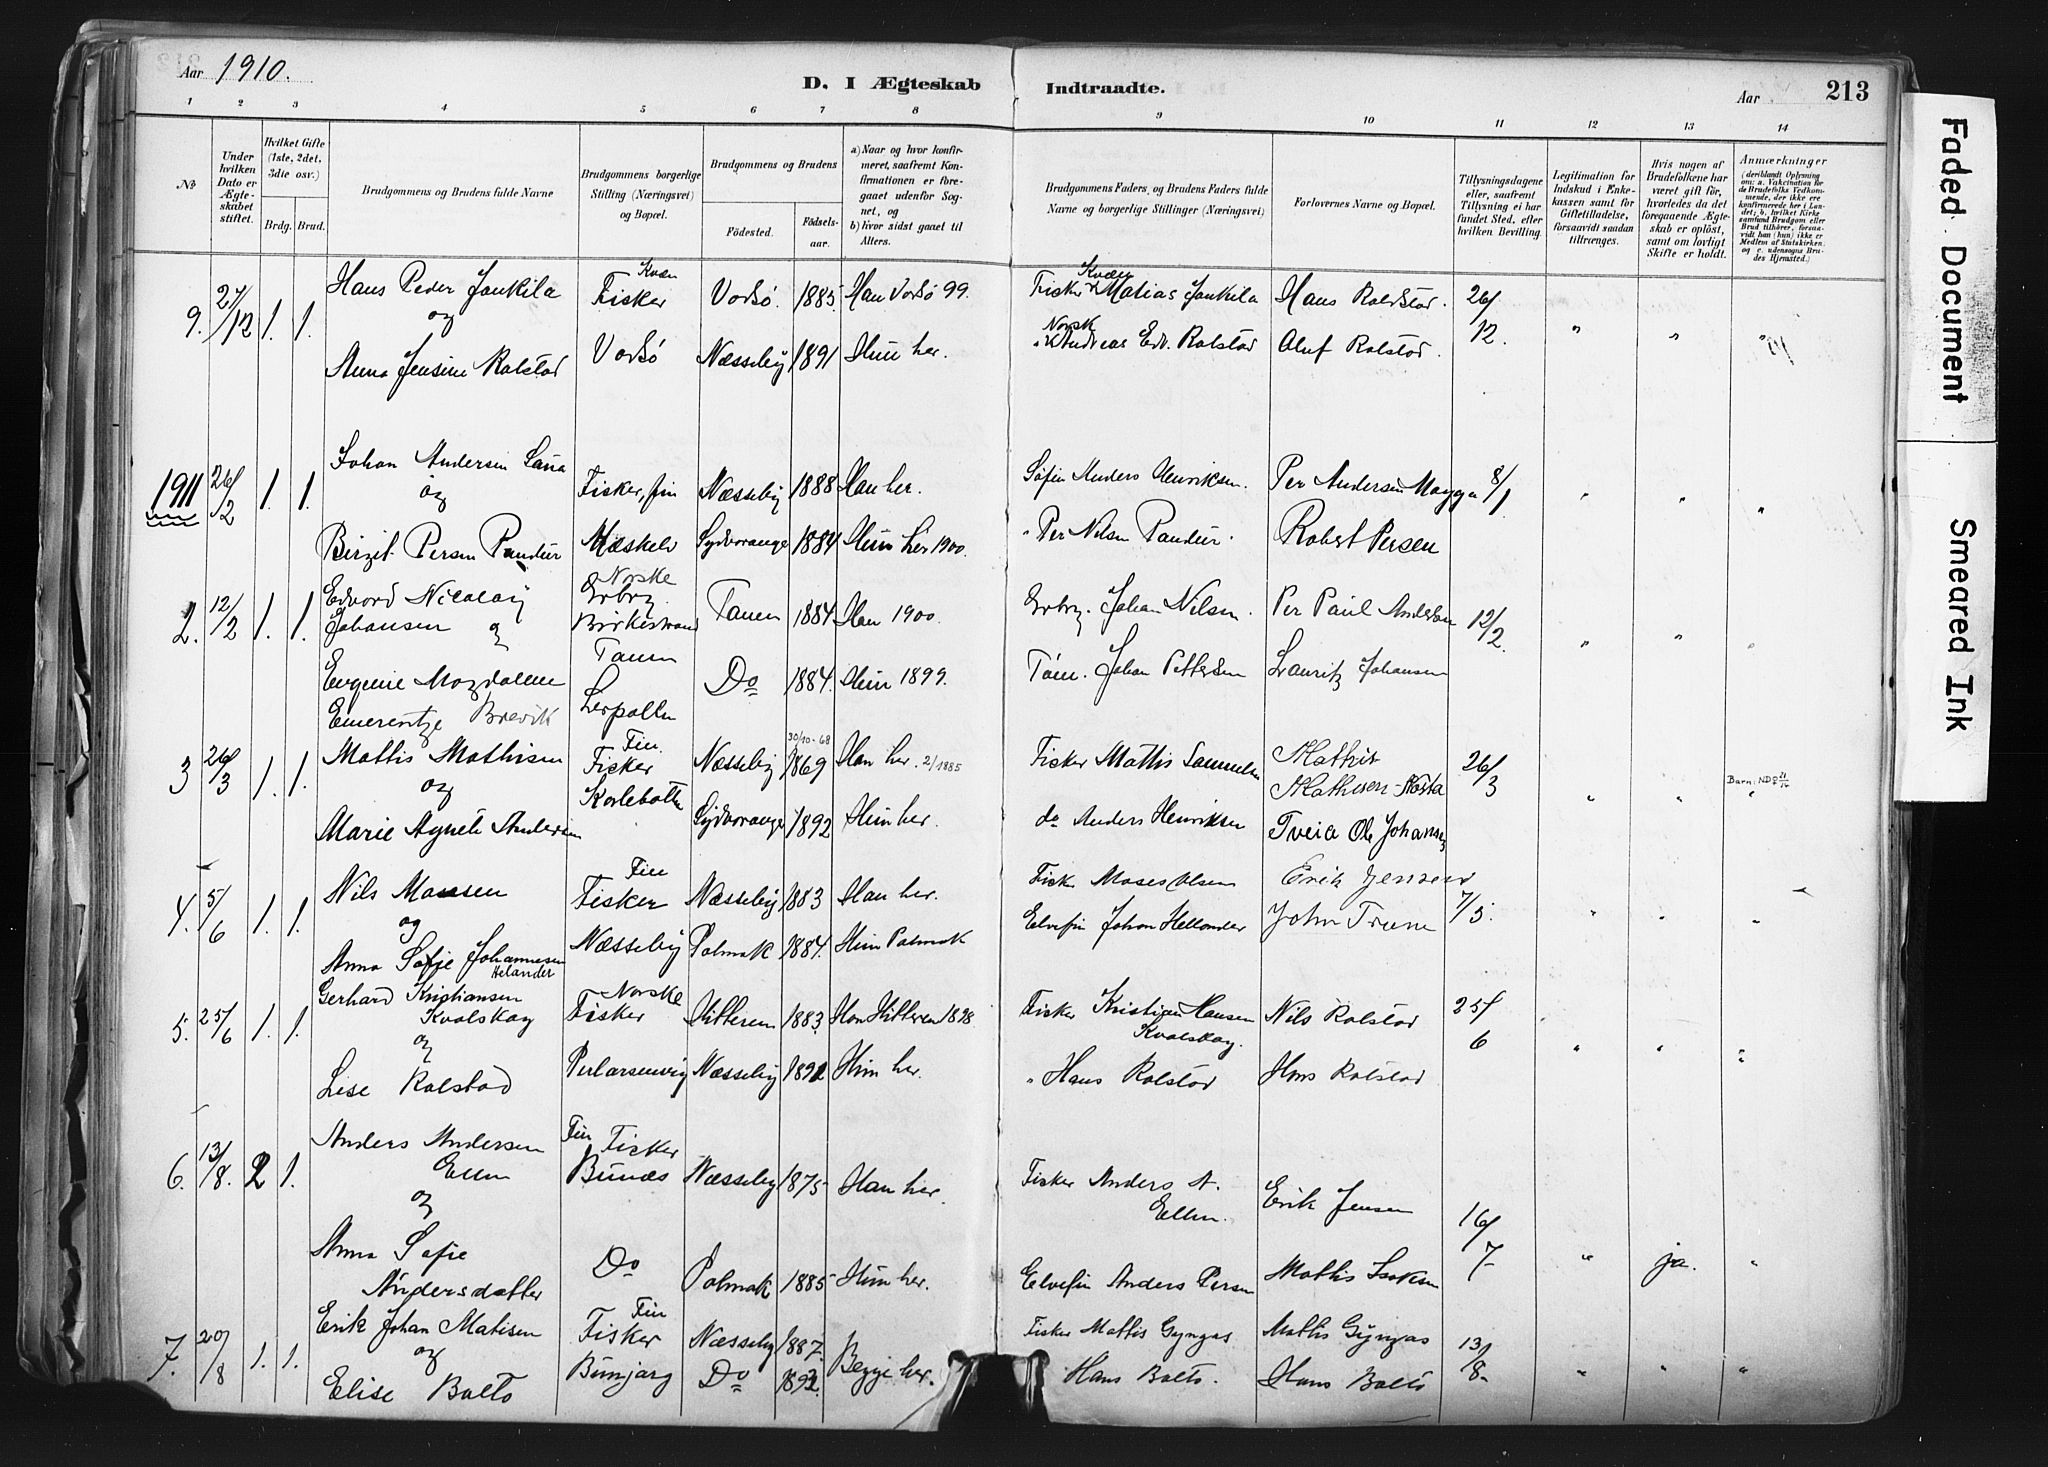 Aar 1910.
D. I Ægteskab Indtraadte.
Aar 213
1 2 3 4 5 6 7 8 9 10 11 12 13 14
№
Under hvilken Dato er Ægteskabet stiftet.
Hvilket Gifte (1ste, 2det, 3die osv.)
Brdg. Brud.
Brudgommens og Brudens fulde Navne
Brudgommens borgerlige Stilling (Næringsvei) og Bopæl.
Brudgommens og Brudens
Födested. Födselsaar.
a) Naar og hvor konfirmeret, saafremt Konfirmationen er foregaaet udenfor Sognet, og
b) hvor sidst gaaet til Alters.
Brudgommens Faders, og Brudens Faders fulde Navne og borgerlige Stillinger (Næringsvei)
Forlovernes Navne og Bopæl.
Tillysningsdagene eller, saafremt Tillysning ei har fundet Sted, efter hvilken Bevilling.
Legitimation for Indskud i Enkekassen samt for Giftetilladelse, forsaavidt saadan tiltrænges.
Hvis nogen af Brudefolkene har været gift för, hvorledes da det foregaaende Ægteskab er oplöst, samt om lovligt Skifte er holdt.
Anmærkninger (deriblandt Oplysning om: a. Vakcination for de Brudefolks Vedkommende, der ikke ere konfirmerede her i Landet; b. hvilket Kirkesamfund Brudgom eller Brud tilhörer, forsaavidt han (hun) ikke er Medlem af Statskirken, og c. udensogns Brudes Hjemsted.)
9. 27/12 1. 1. Hans Peder Jankila Kvæn Fisker Vadsö. 1885 Han Vadsö 99. Fisker Kvæn Matias Jankila Hans Rolstad. 26/12. " " "
og
Anna Jensine Rolstad Vadsö Næsseby 1891 Hun her. " Norsk Andreas Edv. Rolstad Oluf Rolstad.
1911 26/2 1. 1. Johan Andersen Lana Fisker, fin Næsseby 1888 Han her. Søfin Anders Henriksen. Per Andersen Magga 8/1 " " "
og
Birgit Persen Pandur Mæskelv Sydvaranger 1884 Hun her 1900. " Per Nilsen Pandur. Robert Persen
2. 12/2 1. 1. Edvard Nicolay Johansen og Norske Grbr. Birkestrand Tanen Tanen 1884 Han 1900. Grbr. Johan Nilsen. Per Paul Andersen 12/2 " " "
Evgenie Magdalene Emerentze Brevik Lerpollen Do 1884. Hun 1899. Töm. Johan Pettersen Lauritz Johansen
3 26/3 1. 1. Mattis Mathisen Fin. Fisker Karlebotn Næsseby 30/10-68 1869 Han her. 2/1885 Fisker Mattis Samuelsen Mathis Mathisen 26/3 " " Barn: ND
og
Marie Agnete Andersen Sydvaranger 1892 Hun her. do Anders Henriksen Tveia Ole Johansen
4. 5/6 1. 1. Nils Mosesen Fin Fisker Næsseby 1883 Han her. Fisk. Moses Olsen Erik Jensen 7/5. " " "
og
Anna Sofie Johannesen Helander Næsseby Polmak 1884. Hun Polmak Elvefin Johan Hellander John Trane
5. 25/6 1. 1. Gerhard Kristiansen Kvalskag Norske Fisker Hitteren 1883. Han Hitteren 1898 Fisker Kristian Hansen Kvalskag. Nils Rolstad 25/6 " " "
og
Lise Rolstad Perlarsenvig Næsseby 1891 Hun her. " Hans Rolstad Hans Rolstad
6. 13/8. 2 1. Anders Andersen Ellen Fin Fisker Bunæs Næsseby 1875 Han her. Fisker Anders A. Ellen. Erik Jensen 16/7 " ja. "
og
Anna Sofie Andersdatter Do Polmak 1885 Hun her. Elvefin Anders Persen Mattis Isaksen
7. 20/8 1. 1. Erik Johan Matisen Fin Fisker Næsseby 1887. Begge her. Fisker Mattis Gyngas Mattis Gyngas 13/8. " " "
og
Elise Balto Bunjarg Do 1892. Hans Balto. Hans Balto
Faded Document
Smeared Ink